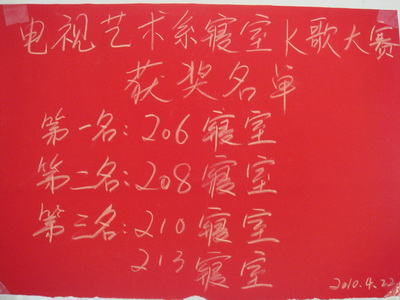 电视艺术系寝室K歌大赛
获奖名单
第一名:206寝室
第二名:208寝室
第三名:210寝室
213寝室
2010.4.22